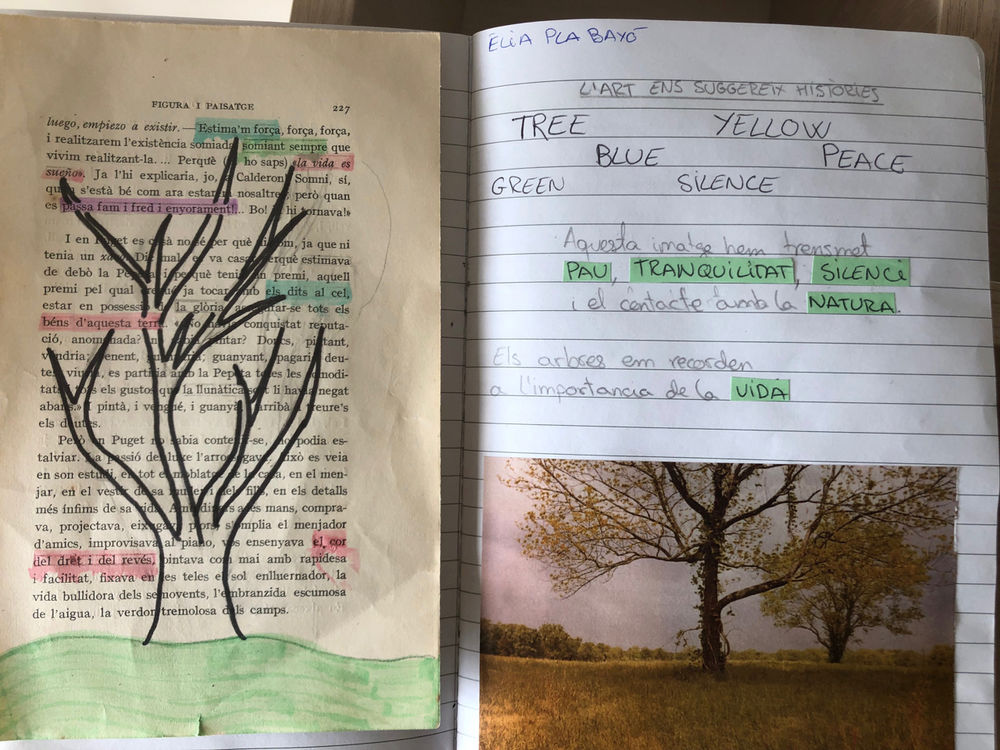 FIGURA I PAISATGE 227
luego, empiezo a existir. — Estima'm força, força, força,
i realitzarem l'existència somiada, somiant sempre que
vivim realitzant-la.... Perquè ho saps) «la vida es
sueño». Ja l'hi explicaria, jo, a Calderon! Somni, sí,
quan s'està bé com ara estarem nosaltres, però quan
es passa fam i fred i enyorament!... Bo! hi tornava!»
I en Puget es casà no sé per què ni com, ja que ni
tenia un xavo. Diu que va casar perquè estimava
de debò la Pepeta i perquè tenia un premi, aquell
premi pel qual creu ja tocar amb els dits al cel,
estar en possessió de la glòria, assegurar-se tots els
béns d'aquesta terra. «No havia conquistat reputa-
ció, anomenada? No sabia pintar? Doncs, pintant,
vendria; venent, guanyaria; guanyant, pagaria deu-
tes, viuria, es partiria amb la Pepeta totes les comodi-
tats i tots els gustos que la llunàtica sort li havia negat
abans.» I pintà, i vengué, i guanyà, i arribà a treure's
els deutes.
Però en Puget no sabia contenir-se, no podia es-
talviar. La passió del luxe l'arrossegava. Això es veia
en son estudi, en tot el moblatge de la casa, en el men-
jar, en el vestir de sa muller i dels fills, en els detalls
més ínfims de sa vida. Amb diners a les mans, compra-
va, projectava, eixugava plors, s'omplia el menjador
d'amics, improvisava al piano, vos ensenyava el cor
del dret i del revés, pintava com mai amb rapidesa
i facilitat, fixava en les teles el sol enlluernador, la
vida bullidora dels semovents, l'embranzida escumosa
de l'aigua, la verdor tremolosa dels camps.
ÈLIA PLA BAYÓ
L'ART ENS SUGGEREIX HISTÒRIES
TREE YELLOW
BLUE PEACE
GREEN SILENCE
Aquesta imatge hem trensmet
PAU, TRANQUILITAT, SILENCI
i el contacte amb la NATURA.
Els arbres em recorden
a l'importancia de la VIDA